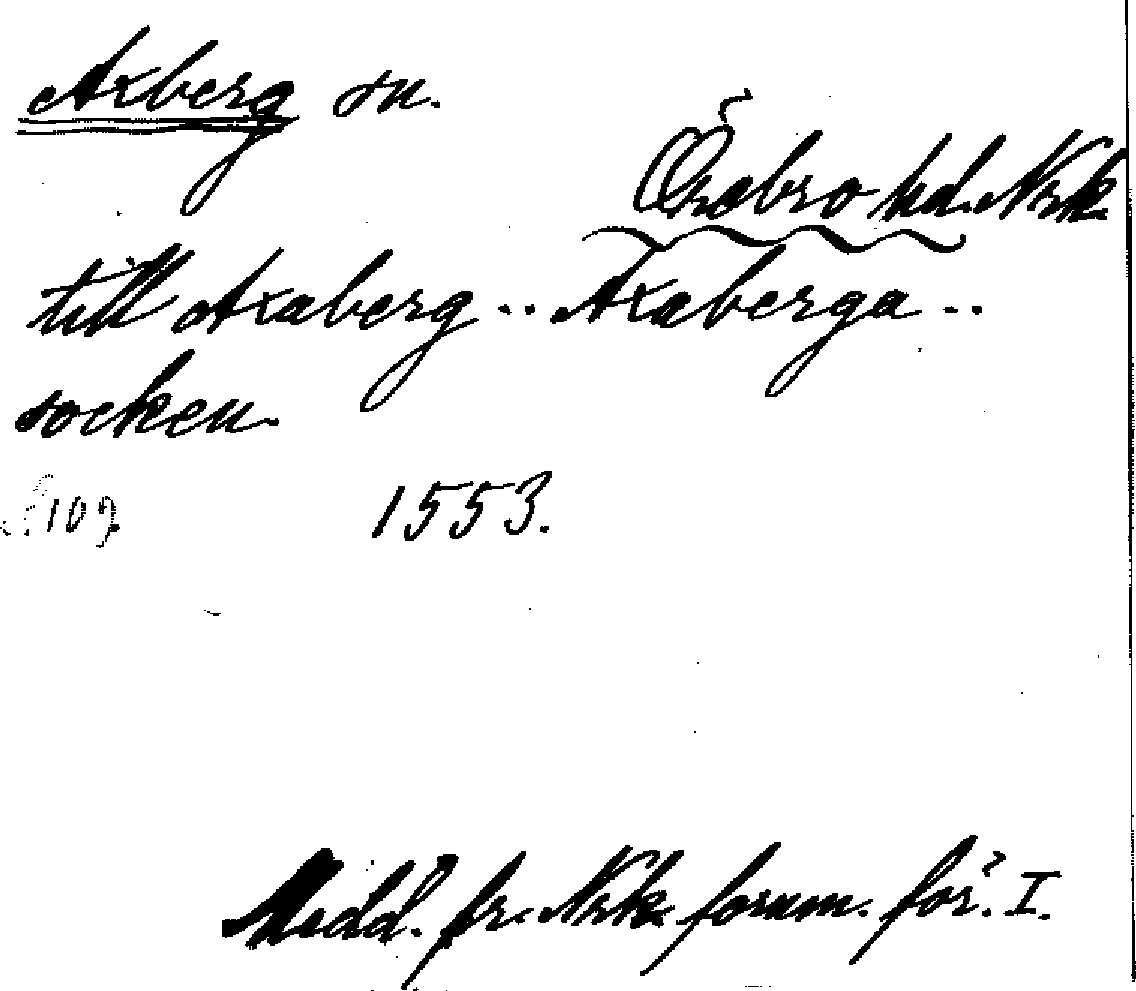 Axberg sn.
Örebro hd. Nrk.
till Axaberg .. Axaberga ..
socken.
109 1553.
Medd. fr. Nrk. fornm. för. I.